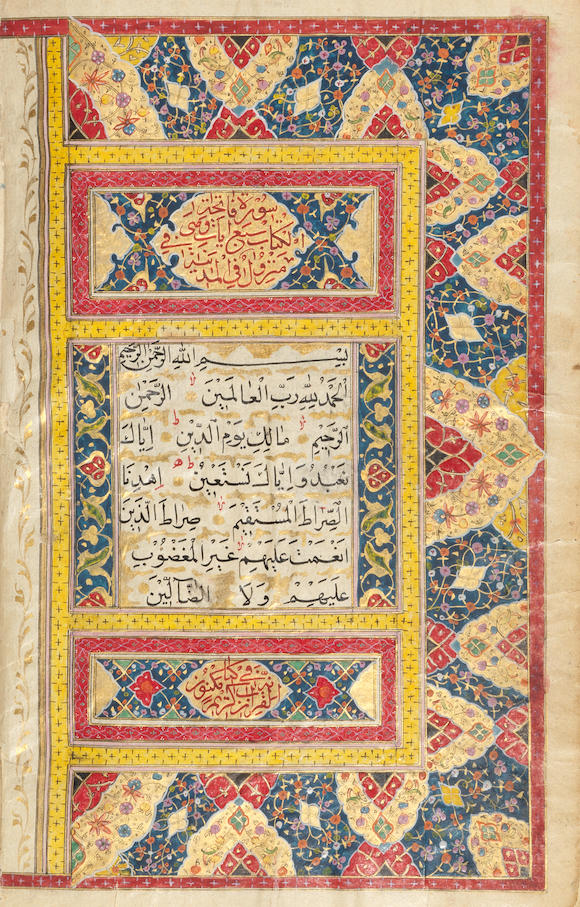 سورة فاتحة
الكتاب سبع
منزول في المدينة
بِسْمِ اللهِ الرَّحْمٰنِ الرَّحِيمِ
اَلْحَمْدُ لِلّٰهِ رَبِّ الْعَالَمِينَ الرَّحْمٰنِ
الرَّحِيمِ مَالِكِ يَوْمِ الدِّينِ اِيَّاكَ
نَعْبُدُ وَاِيَّاكَ نَسْتَعِينُ اِهْدِنَا
الصِّرَاطَ الْمُسْتَقِيمَ صِرَاطَ الَّذِينَ
اَنْعَمْتَ عَلَيْهِمْ غَيْرِ الْمَغْضُوبِ
عَلَيْهِمْ وَلَا الضَّآلِّينَ
في كتاب مكنون
لقرآن كريم